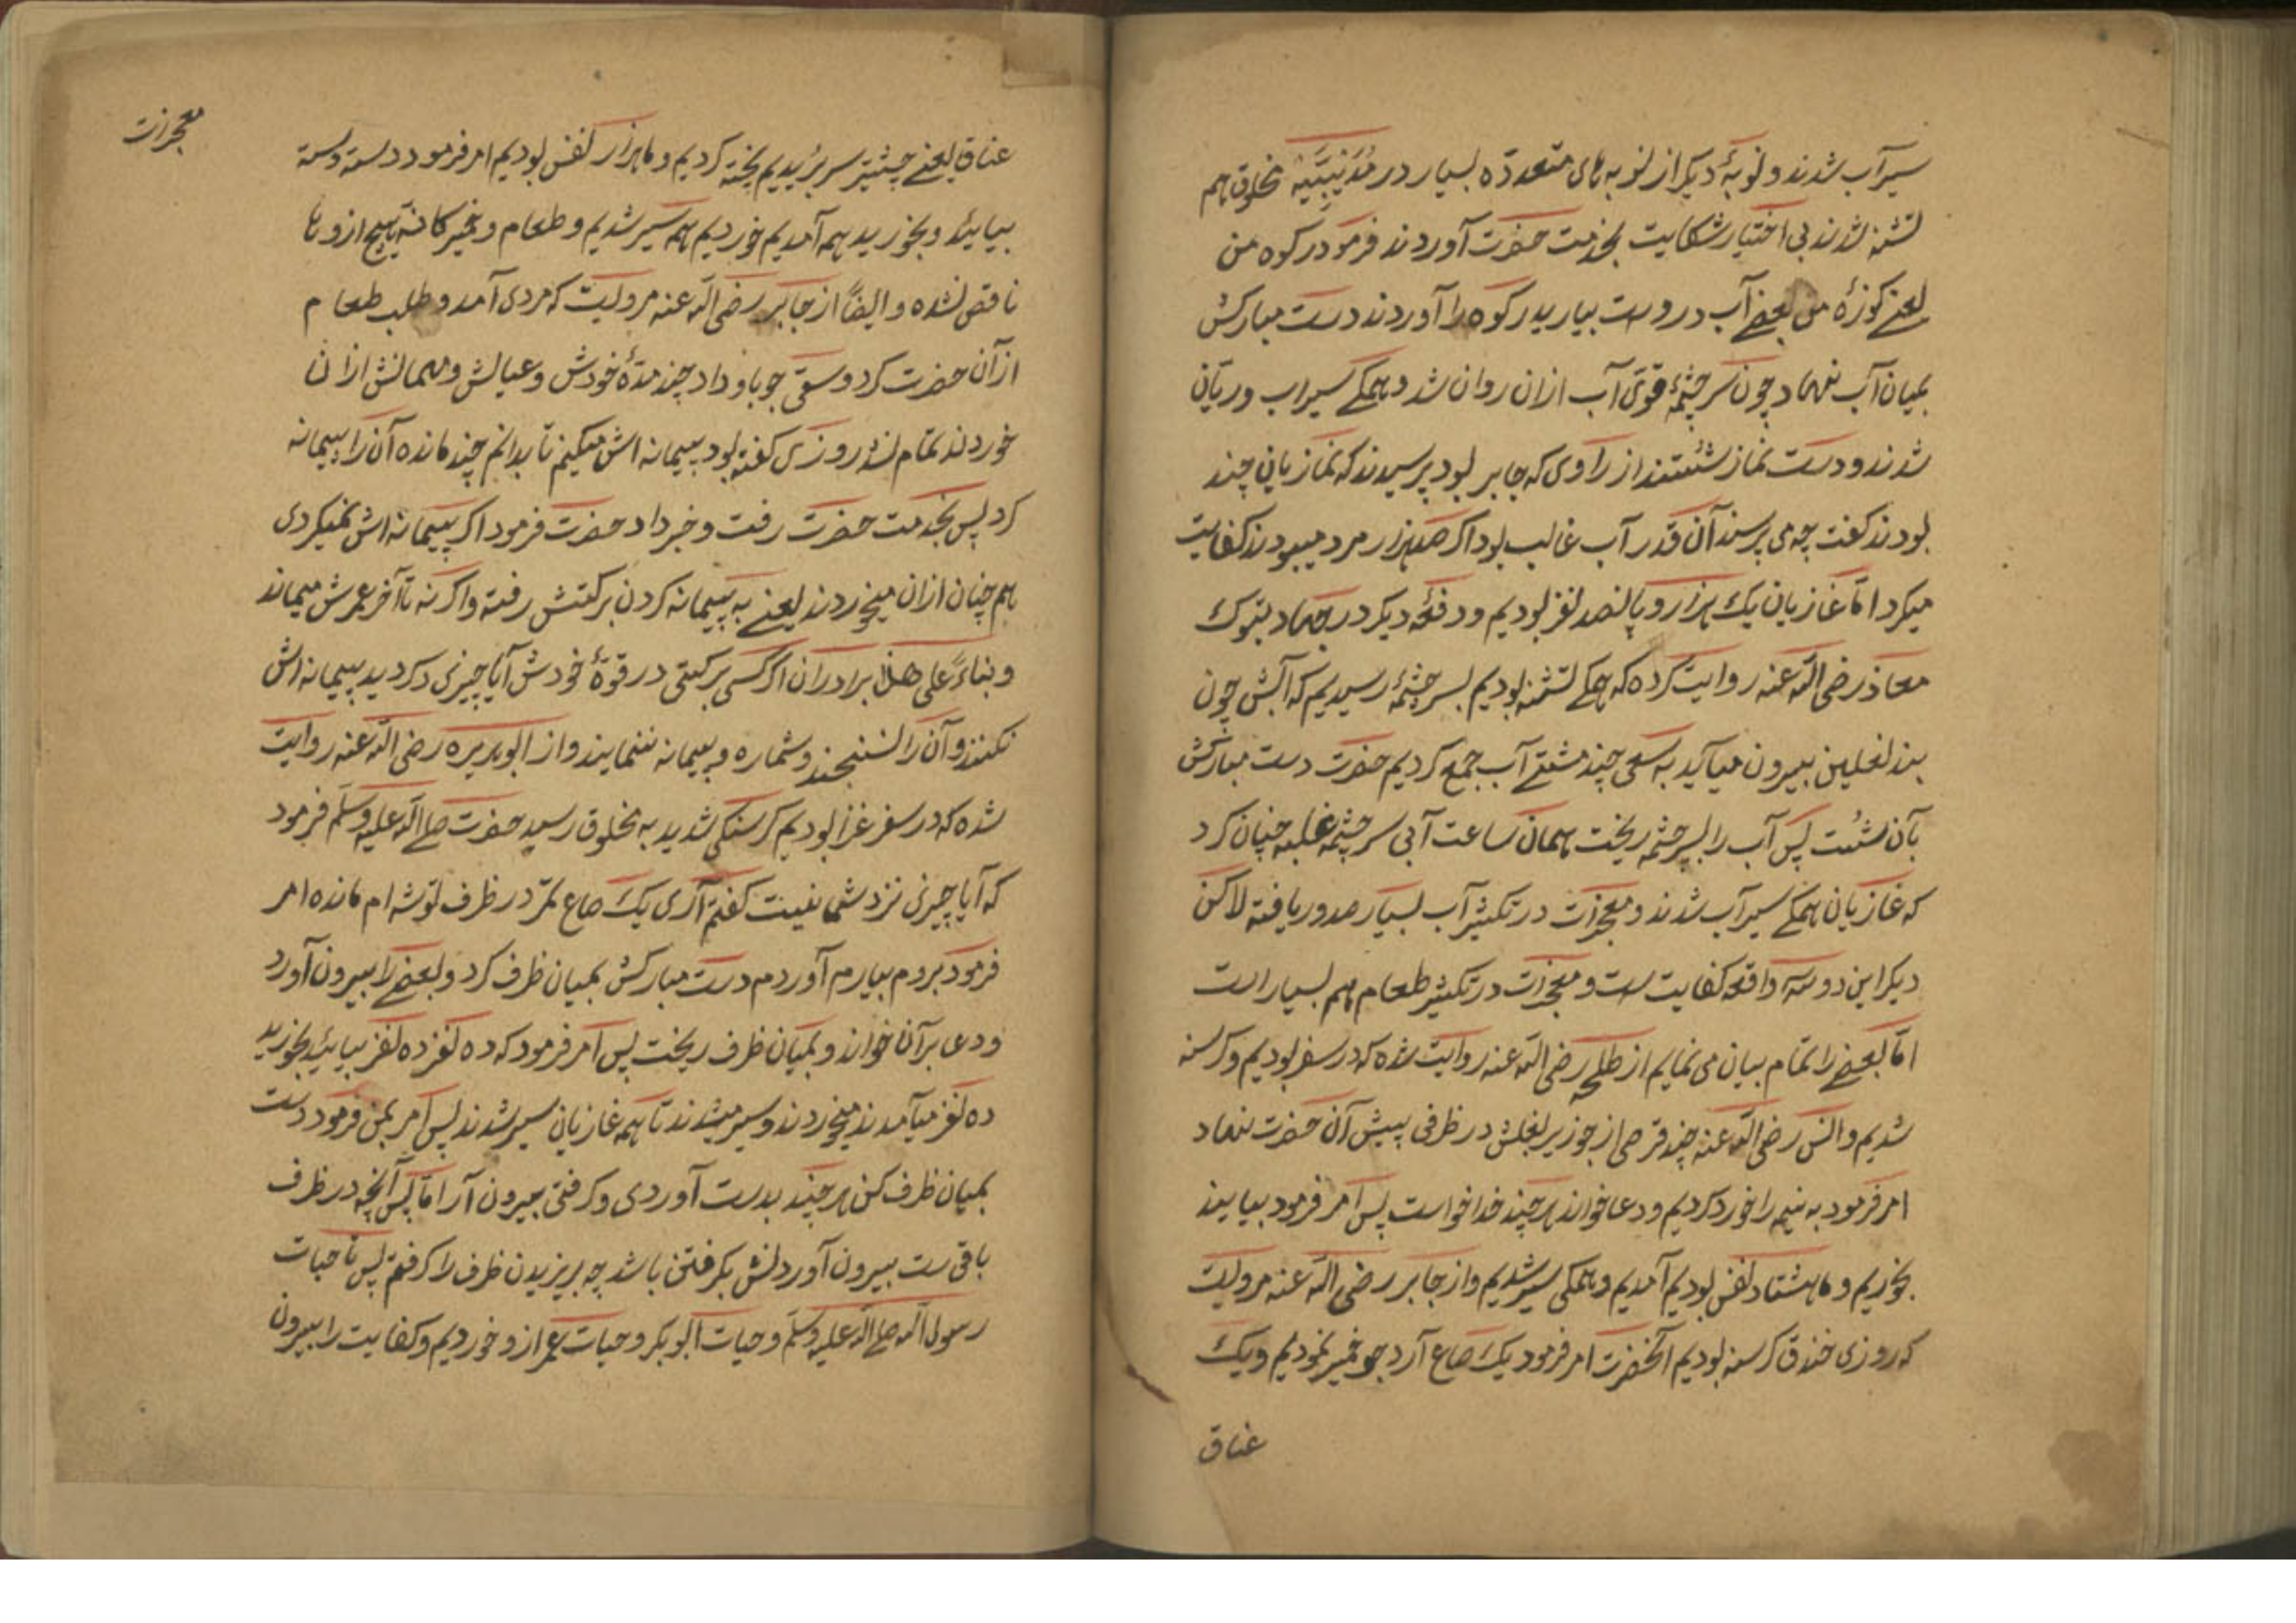 سیرآب شدند و نوبهٔ دیگر از نوبه های متعدّده بسیار در حُدَیْبِیَّیَه مخلوق هم
تشنه شدند بی اختیار شکایت بخدمت حضرت آوردند فرمود رکوه من
یعنے کوزهٔ من بعضے آب دروست بیارید رکوه را آوردند دست مبارکش
بمیان آب نهاد چون سر چشمهٔ قوی آب ازان روان شد و همگے سیراب و ریّان
شدند و دست نماز شُستند از راوی که جابر بود پرسیدند که غازیان چند
بودند گفت چه می پرسند آن قدر آب غالب بود اگر صد هزار مرد میبودند کفایت
میکرد امّا غازیان یک هزار و پانصد نفر بودیم و دفعهٔ دیگر در جهاد تبوک
معاذ رضی الله عنه روایت کرده که همگے تشنه بودیم بسر چشمهٔ رسیدیم که آبش چون
بند نعلین بیرون میآید به سعی چند مشتے آب جمع کردیم حضرت دست مبارکش
بآن شُست پس آب را بسر چشمه ریخت همان ساعت آبی سر چشمه غلبه چنان کرد
که غازیان همگے سیرآب شدند و معجزات در تکثیر آب بسیار صدور یافته لاکن
دیگر این دو سه واقعه کفایت ست و معجزات در تکثیر طعام هم بسیار است
امّا بعضے را تمام بیان می نمایم از طلحه رضی الله عنه روایت شده که در سفر بودیم و گرسنه
شدیم و انس رضی الله عنه چند قرصی از جو زیر بغلش در ظرفی پیش آن حضرت نهاد
امر فرمود به نیم را خورد کردیم و دعا خواند هر چند خدا خواست پس امر فرمود بیایند
بخوریم و ما هشتاد نفس بودیم آمدیم و همگی سیر شدیم و از جابر رضی الله عنه مرویست
که روزی خندق گرسنه بودیم آنحضرت امر فرمود یک صاع آرد جو خمیر نمودیم و یک
عناق
معجزات
عناق یعنے چشتیر سر بریدیم پخته کردیم و ما هزار نفس بودیم امر فرمود دسته دسته
بیایند و بخورید همه آمدیم خوردیم همه سیر شدیم و طعام و خمیر کانّه هیچ ازوها
ناقص نشده و ایضاً از جابر رضی الله عنه مرویست که مردی آمد و طلب طعام
از آن حضرت کرد وسقی جو باو داد چند مدّهٔ خودش و عیالش و مهمانش ازان
خوردند تمام نشد روزی گفته بود پیمانه اش میکنم تا بدانم چند مانده آن را پیمانه
کرد پس بخدمت حضرت رفت و خبر داد حضرت فرمود اگر پیمانه اش نمیکردی
همچنان ازان میخوردند یعنے به پیمانه کردن برکتش رفته و اگر نه تا آخر عمرش میماند
و بناءً علی هذا برادران اگر کسی برکتی در قوّهٔ خودش آیا چیزی دگر دید پیمانه اش
نکنند و آن را نسنجند و شماره و پیمانه ننمایند و از ابو هریره رضی الله عنه روایت
شده که در سفر غزا بودیم گرسنگی شدید به مخلوق رسید حضرت صلی الله علیه وسلّم فرمود
که آیا چیزی نزد شما نیست گفتم آری یک صاع تمر در ظرف توشه ام مانده امر
فرمود بروم بیارم آوردم دست مبارکش بمیان ظرف کرد و بعضے را بیرون آورد
و دعا بر آن خواند و بمیان ظرف ریخت پس امر فرمود که ده نفر ده نفر بیایند بخورید
ده نفر میآمدند میخوردند و سیر میشدند تا همه غازیان سیر شدند پس امر بمن فرمود دست
بمیان ظرف کن هر چند بدست آوردی و گرفتی بیرون آر امّا پس آنچه در ظرف
باقی ست بیرون آوردنش بگرفتن باشد چه بریزیدن ظرف را گرفتم پس تا حیات
رسول الله صلی الله علیه وسلّم و حیات ابو بکر و حیات عمر ازو خوردیم و کفایت را بیرون